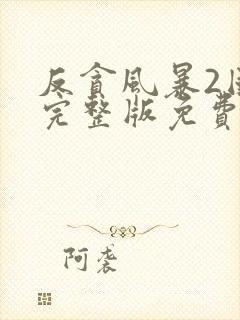 反貪風暴2
完整版免費
阿袭